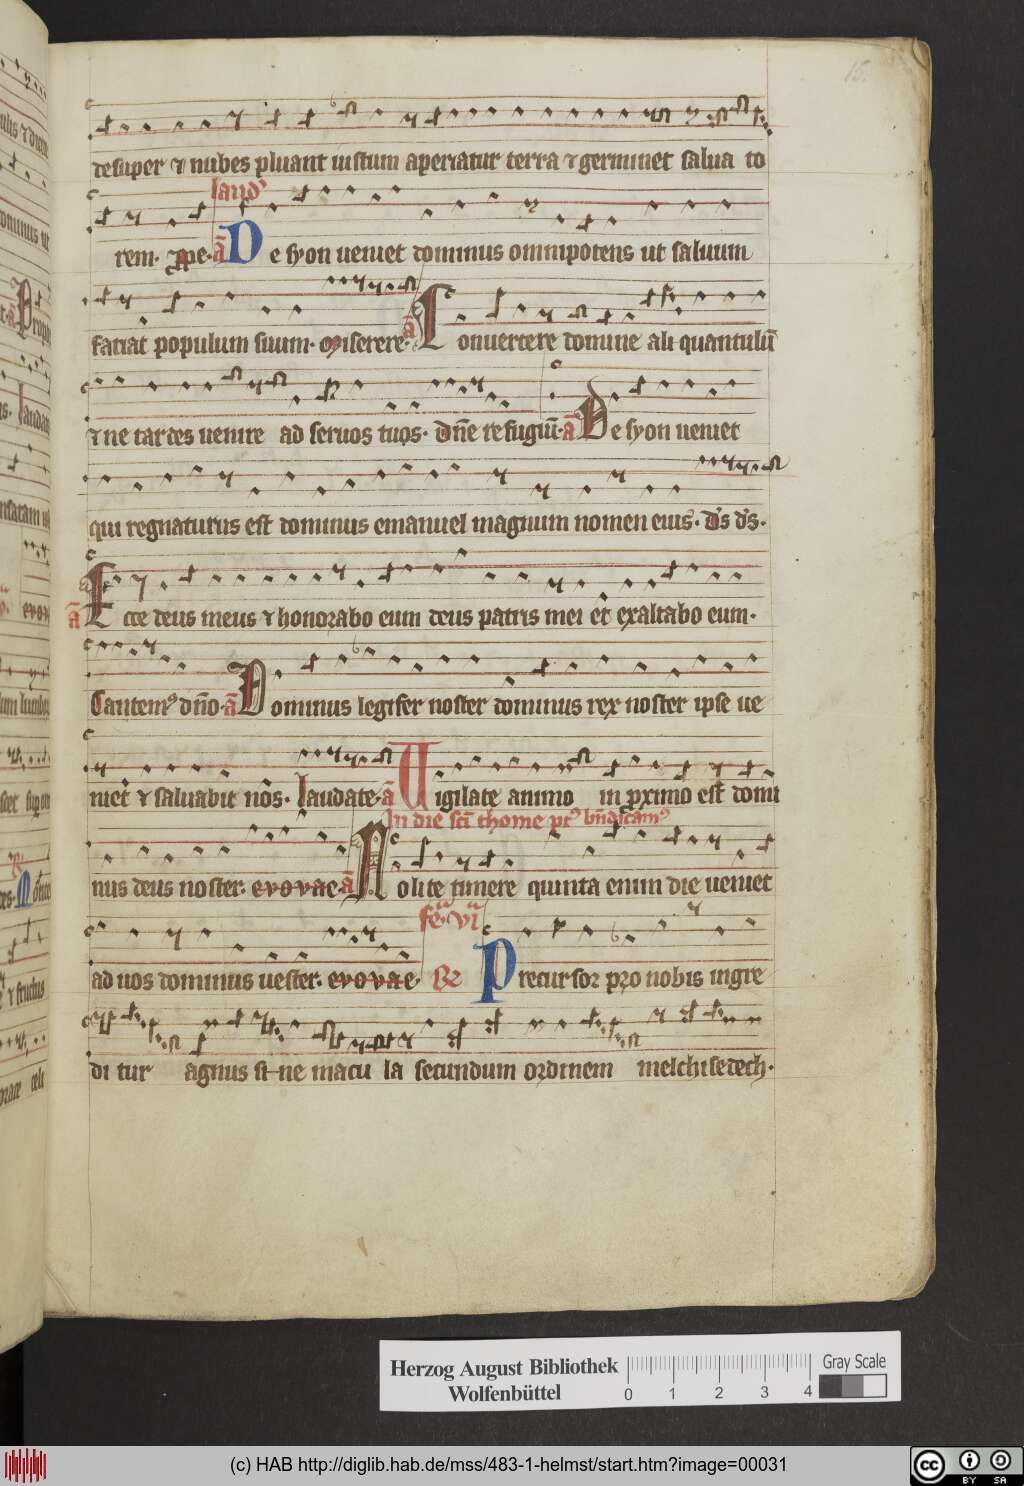 15.
desuper ⁊ nubes pluant iustum aperiatur terra ⁊ germinet salua to
laud
rem. ppe. a De syon ueniet dominus omnipotens ut saluum
faciat populum suum. Miserere. a Conuertere domine ali quantulū
⁊ ne tardes uenire ad seruos tuos. Dn̄e refugiū. a De syon ueniet
qui regnaturus est dominus emanuel magnum nomen eius. ds ds.
a Ecce deus meus ⁊ honorabo eum deus patris mei et exaltabo eum.
Cantemꝰ dn̄o. a Dominus legifer noster dominus rex noster ipse ue
niet ⁊ saluabit nos. laudate. a Uigilate animo in proximo est domi
In die scī thome
nus deus noster. evovae. a Nolite timere quinta enim die ueniet
fe. vi
ad uos dominus uester. evovae. Precursor pro nobis ingre
di tur agnus sine macu la secundum ordinem melchisedech.
Herzog August Bibliothek
Wolfenbüttel
0 1 2 3 4
Gray Scale
(c) HAB http://diglib.hab.de/mss/483-1-helmst/start.htm?image=00031
cc BY SA